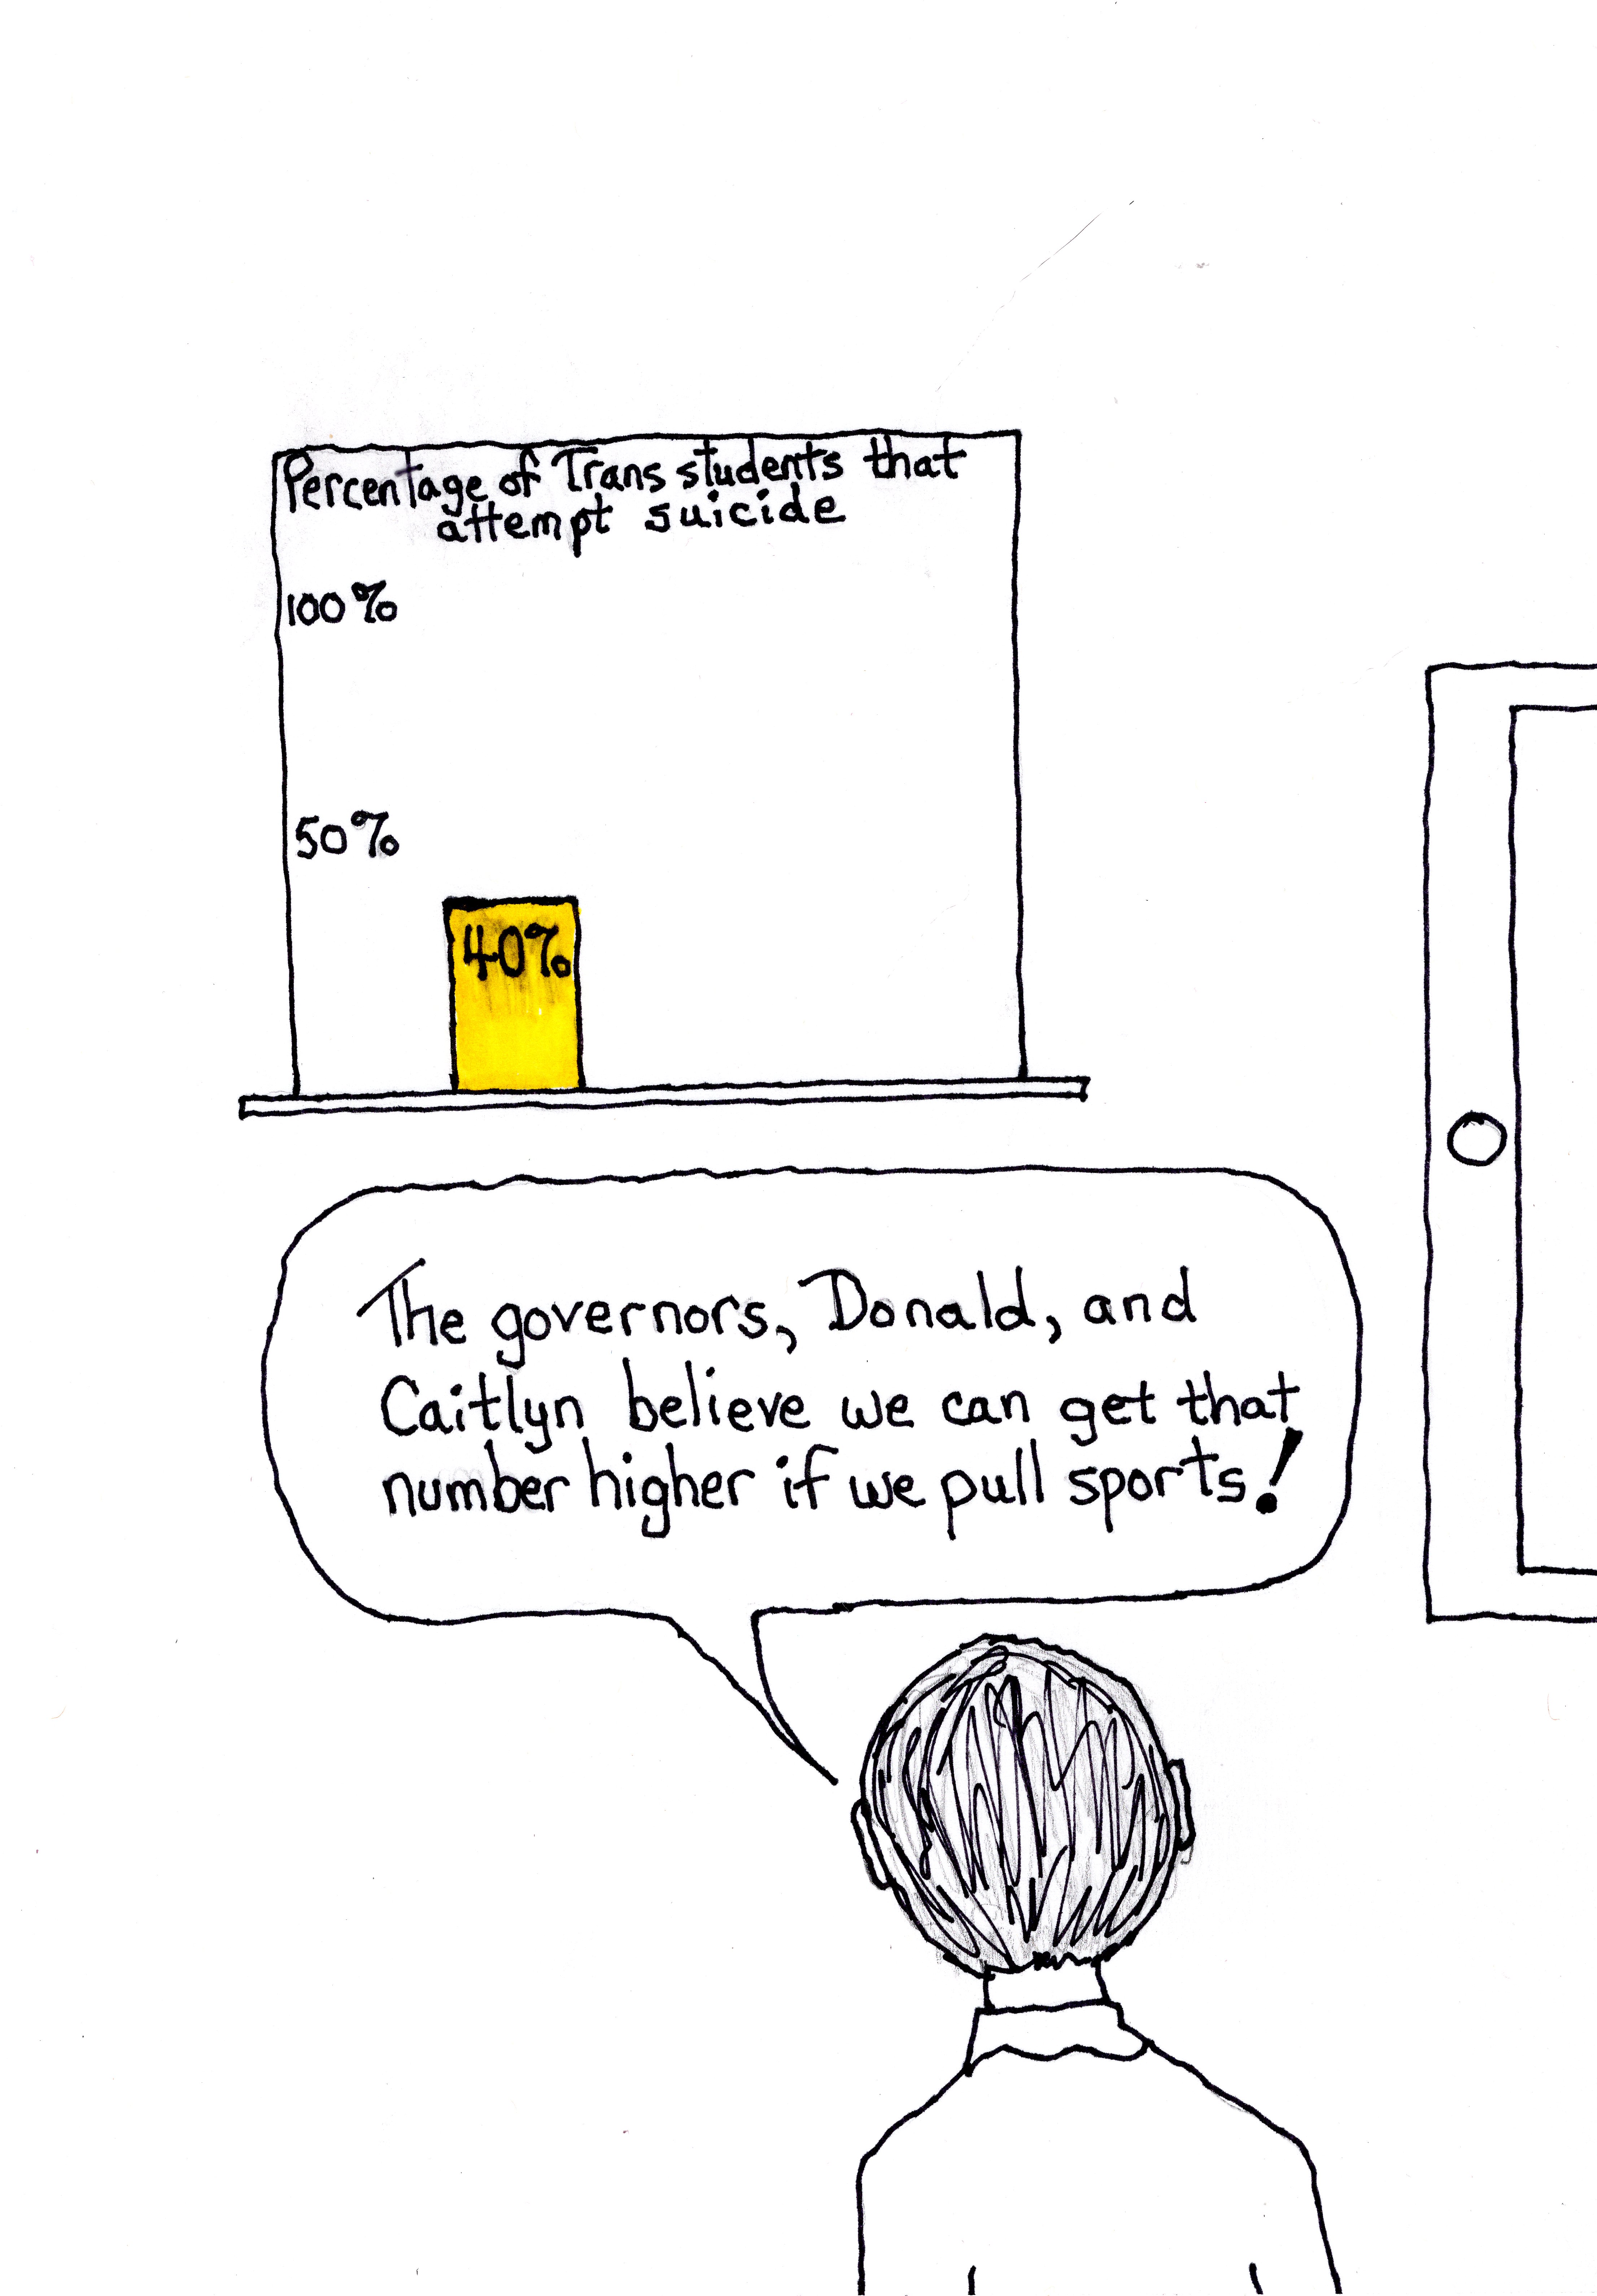 Percentage of Trans students that
attempt suicide
100%
50%
40%
The governors, Donald, and
Caitlyn believe we can get that
number higher if we pull sports!